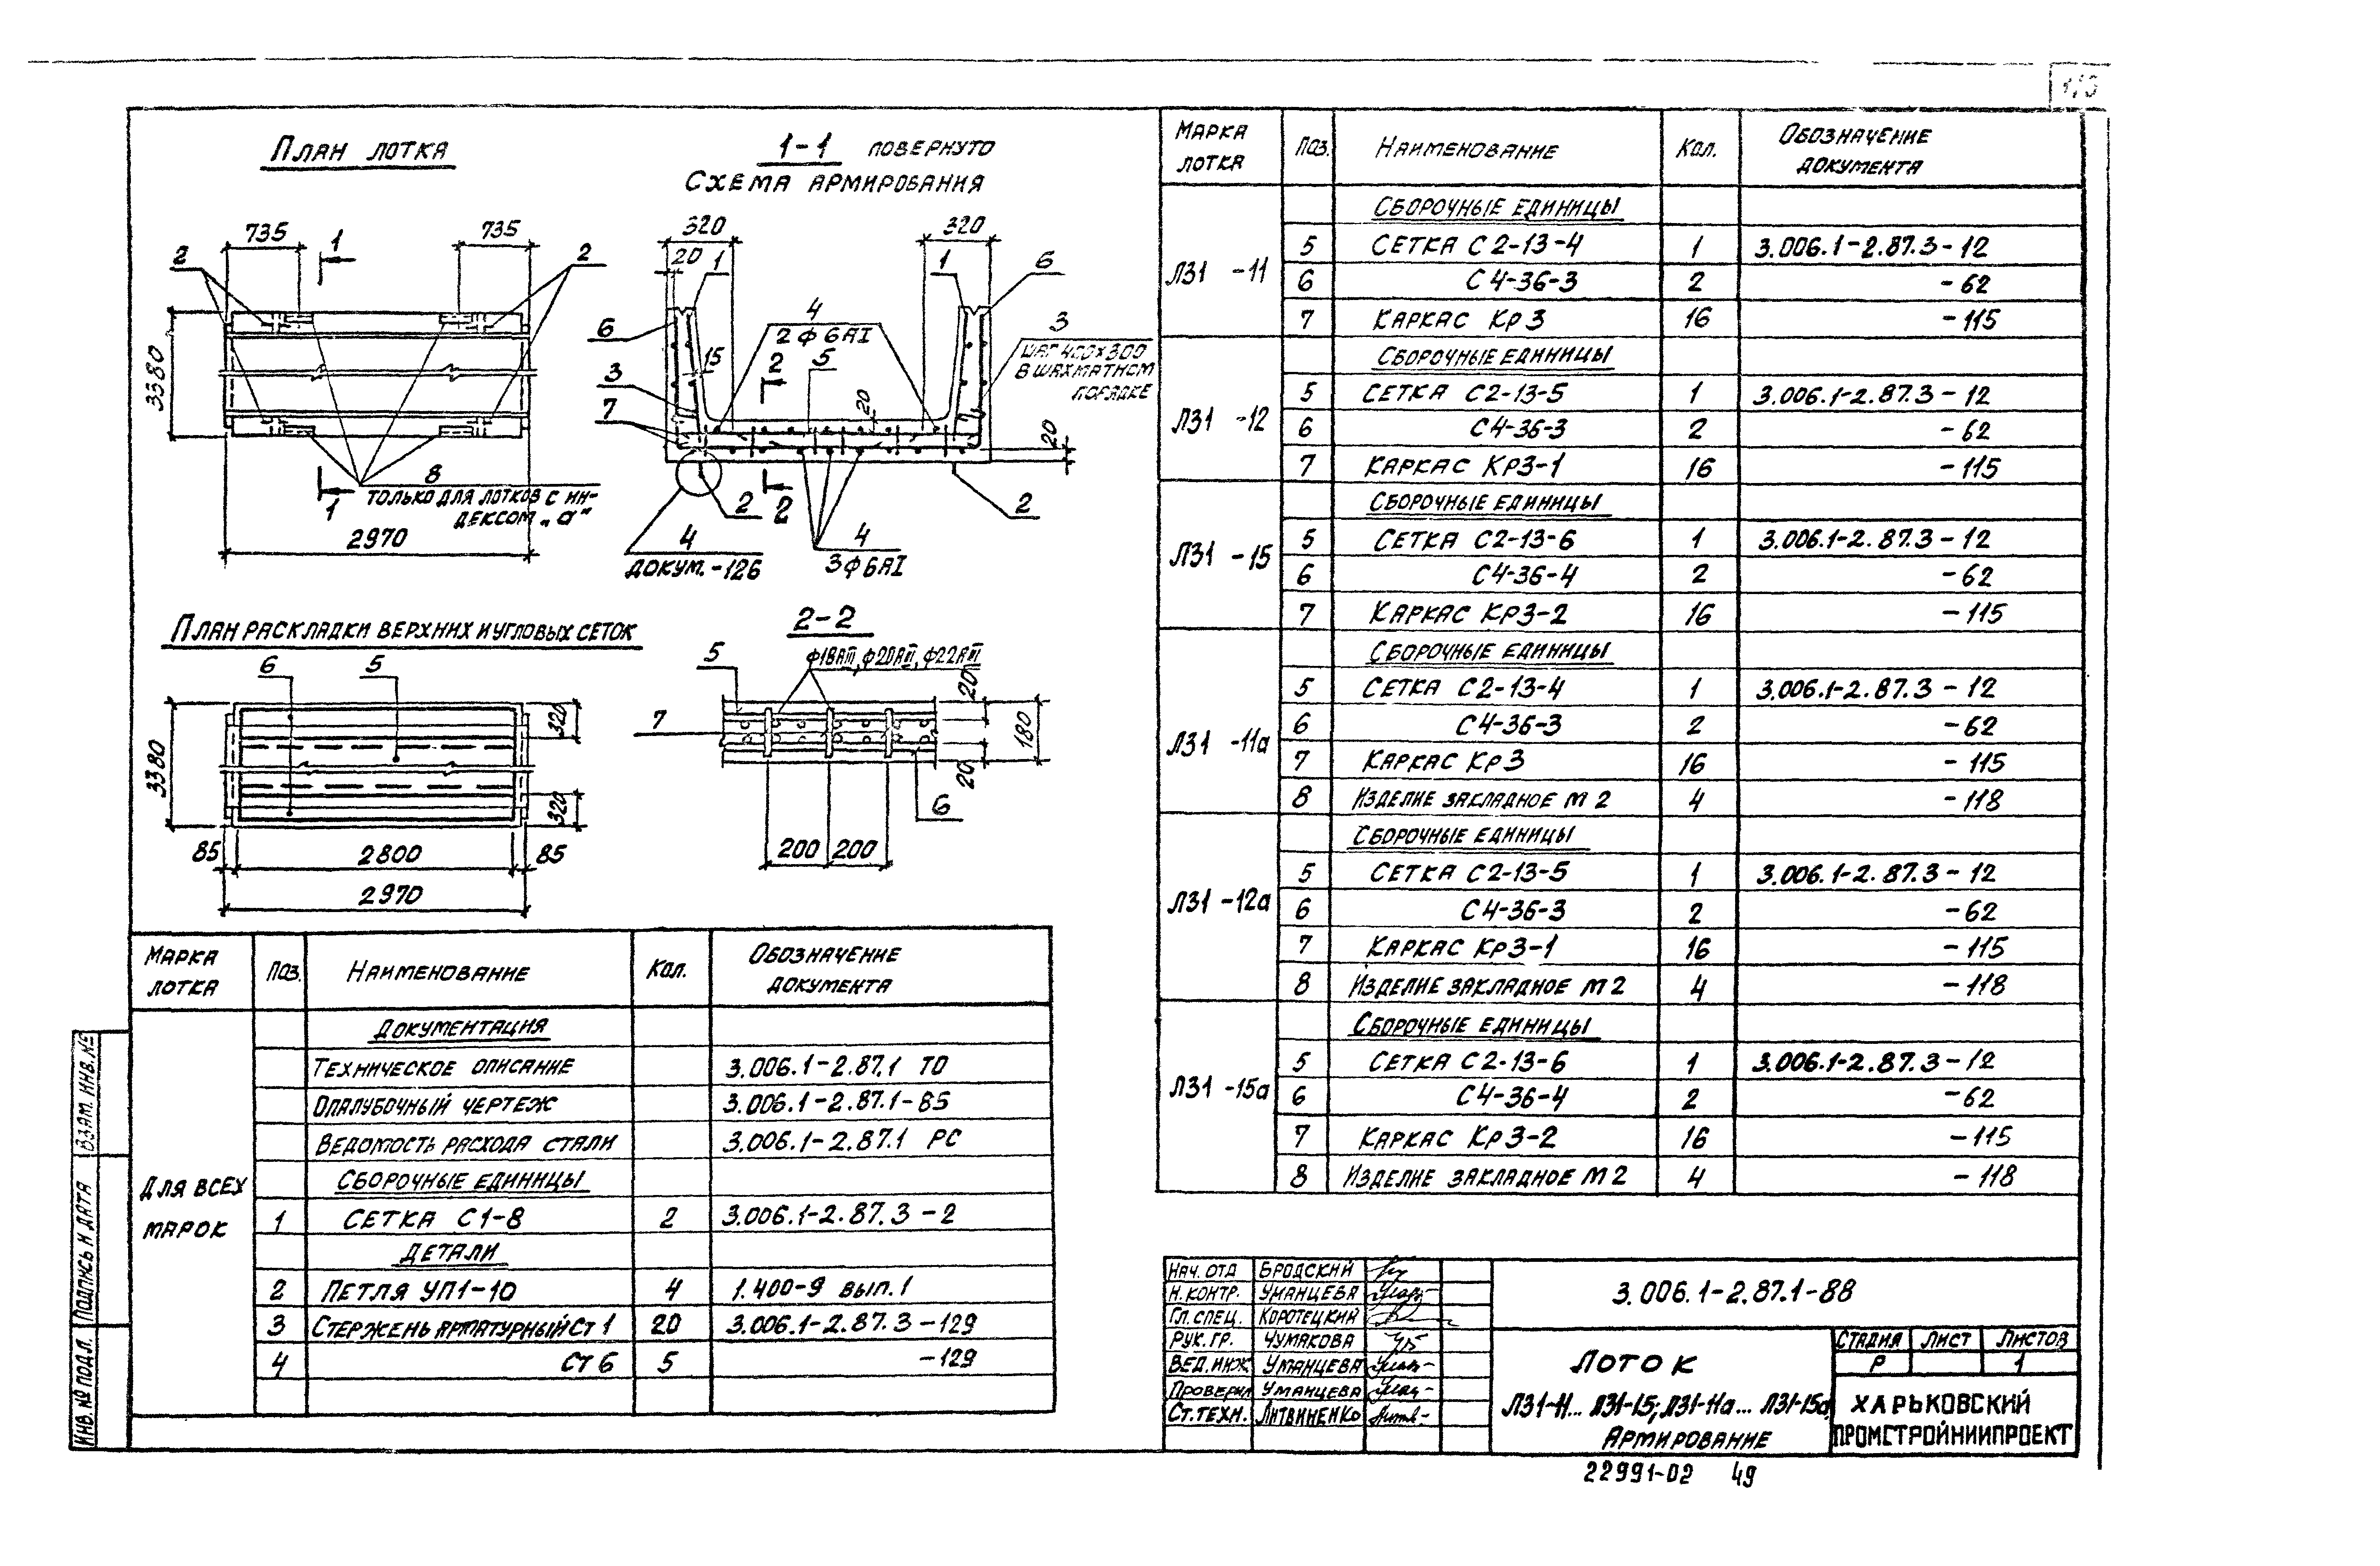 План лотка
1-1 повернуто
Схема армирования
735
735
1
2
2
3380
8
только для лотков с ин-
дексом „а"
1
2970
320
320
20
1
1
6
4
2ф6АI
5
3
шаг 400×300
в шахматном
порядке
6
15
2
3
7
20
20
2
2
2
4
докум. -126
4
3ф6АI
План раскладки верхних и угловых сеток
6
5
3380
320
320
85
2800
85
2970
2-2
5
ф18АIII, ф20АIII, ф22АIII
7
20
180
20
6
200 200
Марка лотка | Поз. | Наименование | Кол. | Обозначение документа
Для всех марок
Документация
Техническое описание 3.006.1-2.87.1 ТО
Опалубочный чертеж 3.006.1-2.87.1-85
Ведомость расхода стали 3.006.1-2.87.1 РС
Сборочные единицы
1 Сетка С1-8 2 3.006.1-2.87.3-2
Детали
2 Петля УП1-10 4 1.400-9 вып.1
3 Стержень арматурный Ст 1 20 3.006.1-2.87.3-129
4 Ст 6 5 -129
Марка лотка | Поз. | Наименование | Кол. | Обозначение документа
Л31 -11
Сборочные единицы
5 Сетка С2-13-4 1 3.006.1-2.87.3-12
6 С4-36-3 2 -62
7 Каркас Кр3 16 -115
Л31 -12
Сборочные единицы
5 Сетка С2-13-5 1 3.006.1-2.87.3-12
6 С4-36-3 2 -62
7 Каркас Кр3-1 16 -115
Л31 -15
Сборочные единицы
5 Сетка С2-13-6 1 3.006.1-2.87.3-12
6 С4-36-4 2 -62
7 Каркас Кр3-2 16 -115
Л31 -11а
Сборочные единицы
5 Сетка С2-13-4 1 3.006.1-2.87.3-12
6 С4-36-3 2 -62
7 Каркас Кр3 16 -115
8 Изделие закладное М2 4 -118
Л31 -12а
Сборочные единицы
5 Сетка С2-13-5 1 3.006.1-2.87.3-12
6 С4-36-3 2 -62
7 Каркас Кр3-1 16 -115
8 Изделие закладное М2 4 -118
Л31 -15а
Сборочные единицы
5 Сетка С2-13-6 1 3.006.1-2.87.3-12
6 С4-36-4 2 -62
7 Каркас Кр3-2 16 -115
8 Изделие закладное М2 4 -118
Нач. отд Бродский
Н. контр. Уманцева
Гл. спец. Коротецкий
Рук. гр. Чумакова
Вед. инж Уманцева
Проверил Уманцева
Ст. техн. Литвиненко
3.006.1-2.87.1-88
Лоток
Л31-11... Л31-15; Л31-11а... Л31-15а
Армирование
Стадия Лист Листов
Р 1
Харьковский
Промстройниипроект
22991-02 49
Инв. № подл. Подпись и дата Взам. инв. №